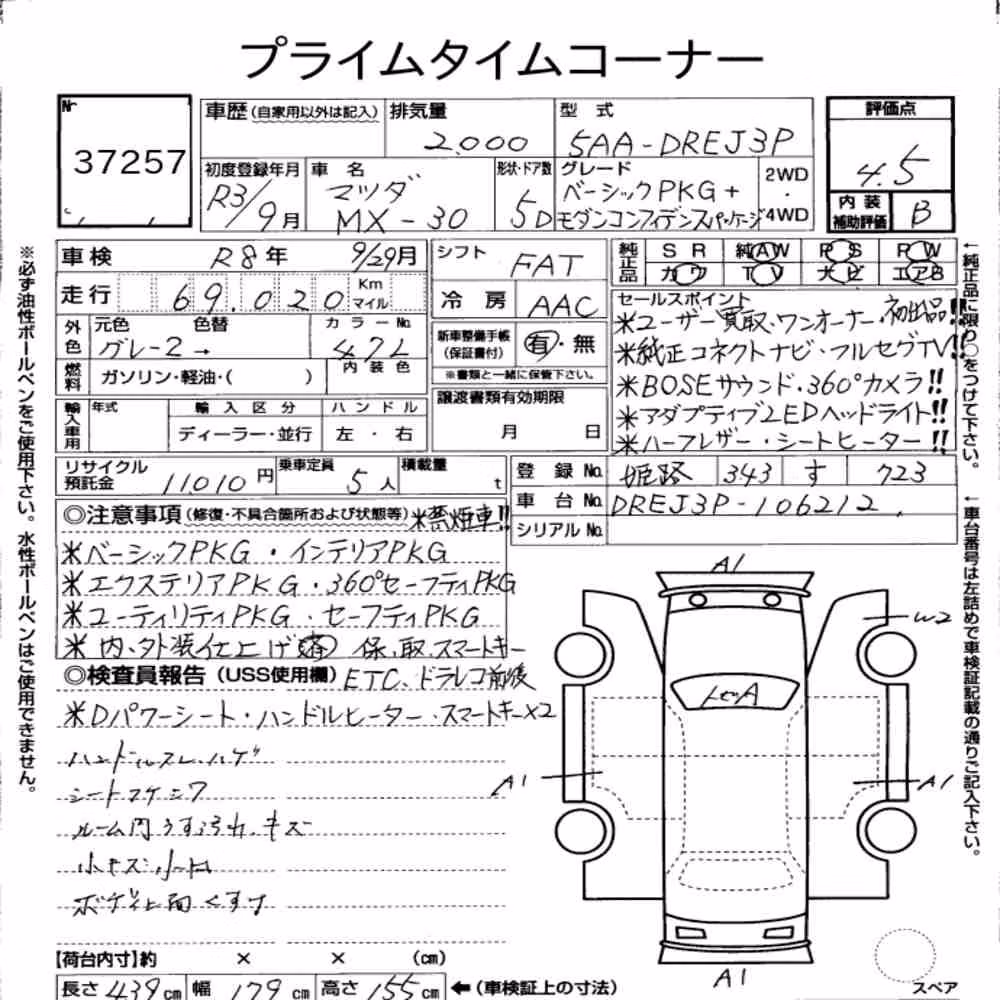 プライムタイムコーナー
Nr 37257
車歴 (自家用以外は記入)
排気量 2,000
型式 5AA-DREJ3P
評価点 4.5
内装補助評価 B
初度登録年月 R3/9月
車名 マツダ MX-30
形状・ドア数 5D
グレード ベーシックPKG+ モダンコンフィデンスパッケージ
2WD・4WD
車検 R8年 9/29月
シフト FAT
純正品 SR 純AW PS PW
カワ TV ナビ エアB
走行 69.020 Km マイル
冷房 AAC
外色 元色 色替 カラーNo. 内装色
グレー2→ 47L
新車整備手帳(保証書付) 有・無
※書類と一緒に保管下さい。
燃料 ガソリン・軽油・( )
輸入車用 年式 輸入区分 ハンドル
ディーラー・並行 左・右
譲渡書類有効期限
月 日
セールスポイント
*ユーザー買取・ワンオーナー・初出品!!
*純正コネクトナビ・フルセグTV!!
*BOSEサウンド・360°カメラ!!
*アダプティブLEDヘッドライト!!
*ハーフレザー・シートヒーター!!
リサイクル預託金 11010円
乗車定員 5人
積載量 t
登録No. 姫路 343 す 723
車台No. DREJ3P-106212
シリアルNo.
◎注意事項 (修復・不具合箇所および状態等) *禁煙車!!
*ベーシックPKG・インテリアPKG
*エクステリアPKG・360°セーフティPKG
*ユーティリティPKG・セーフティPKG
*内・外装仕上げ済 保、取、スマートキー
◎検査員報告 (USS使用欄) ETC、ドラレコ前後
*Dパワーシート・ハンドルヒーター・スマートキー×2
ハンドルスレ、ハゲ
シート
ルーム内うす汚れ、キズ
小キズ、
ボディ上面くすり
A1
W2
A
A1
A1
A1
スペア
【荷台内寸】約 × × (cm)
長さ 439cm 幅 179cm 高さ 155cm ←(車検証上の寸法)
※必ず油性ボールペンをご使用下さい。水性ボールペンはご使用できません。
←純正品に限り○をつけて下さい。
←車台番号は左詰めで車検証記載の通りご記入下さい。